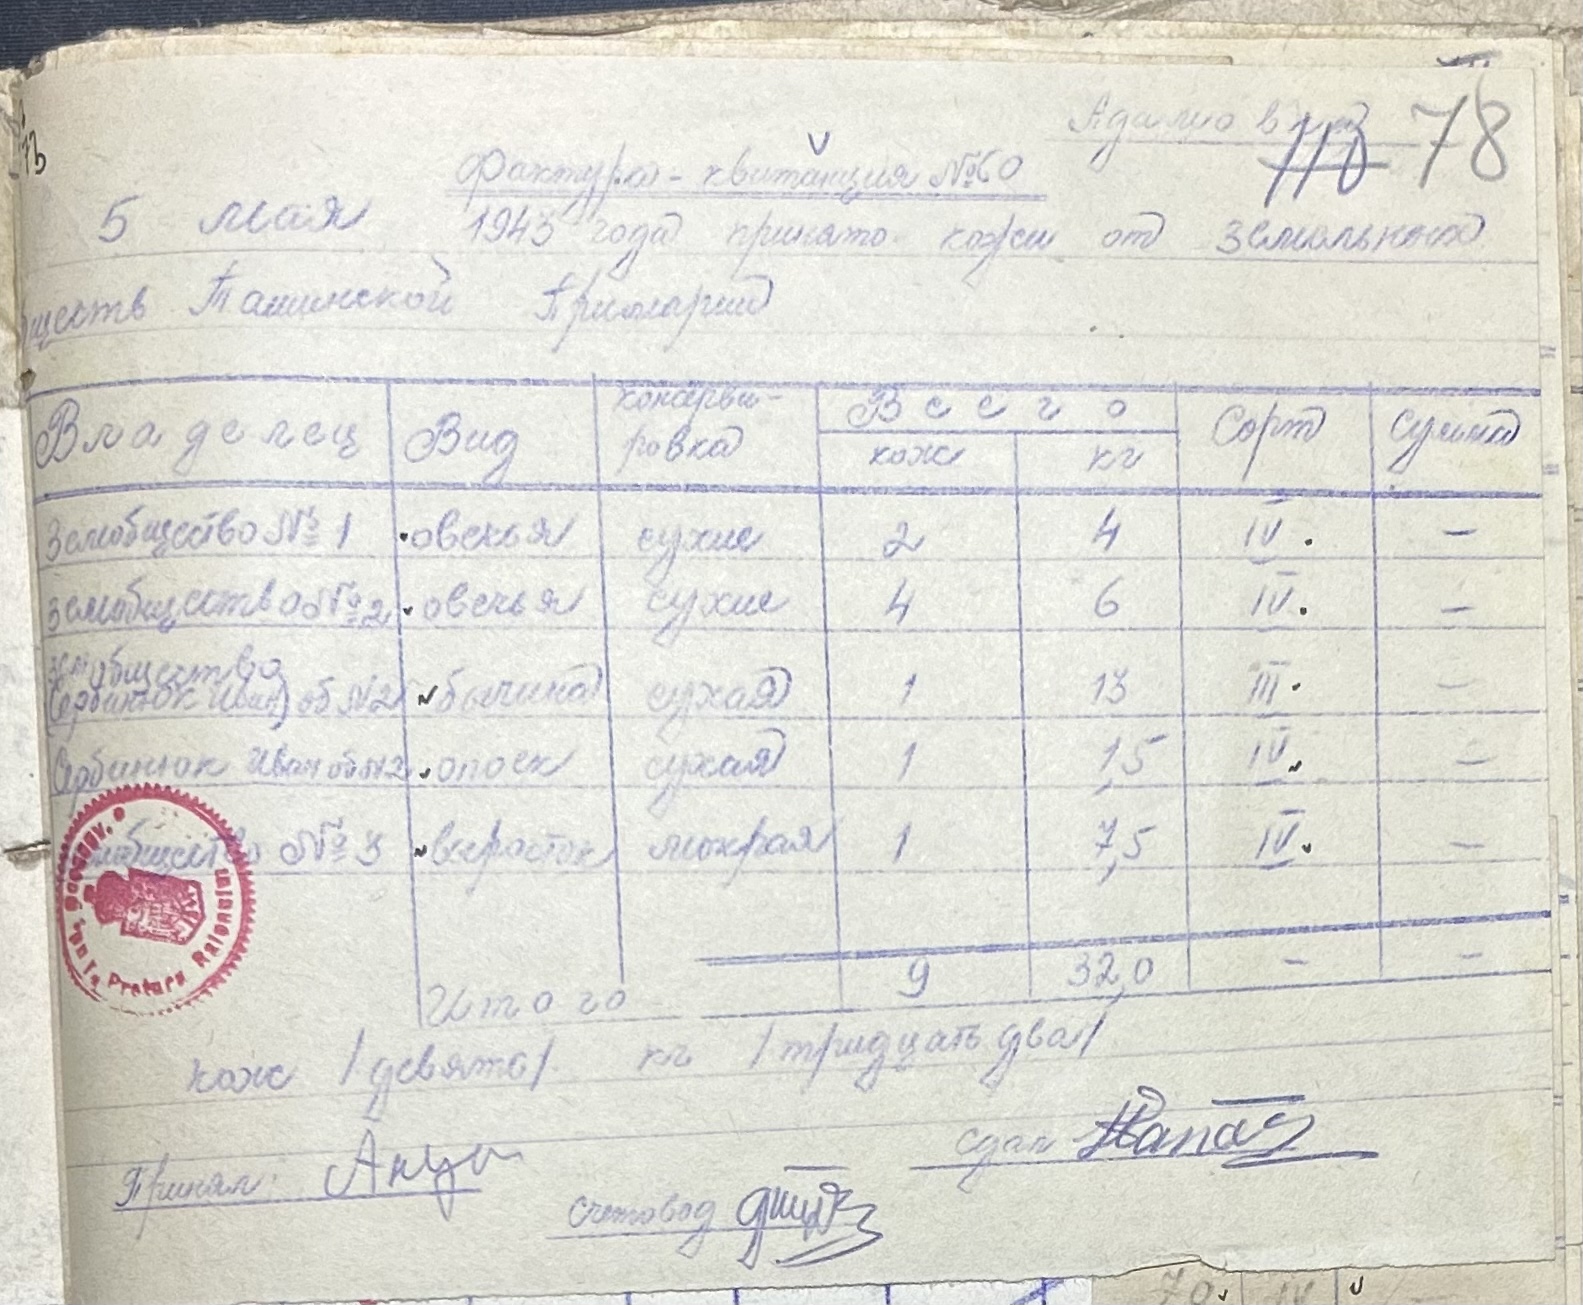 78
Фактура-квитанция №60
5 мая 1943 года принято кожи от земельных
обществ Ташинской Примарии
Владелец Вид консерви-ровка Всего кож кг Сорт Сумма
Земобщество №1 овечья сухие 2 4 IV. —
Земобщество №2 овечья сухие 4 6 IV. —
Земобщество
(Сербинюк Иван) об №2 бычина сухая 1 13 III. —
Сербинюк Иван об №2 опоек сухая 1 1,5 IV. —
Земобщество №3 выросток мокрая 1 7,5 IV. —
Итого 9 32,0 — —
кож /девять/ кг /тридцать два/
Сдал
Принял:
Счетовод
Pretura Raionului